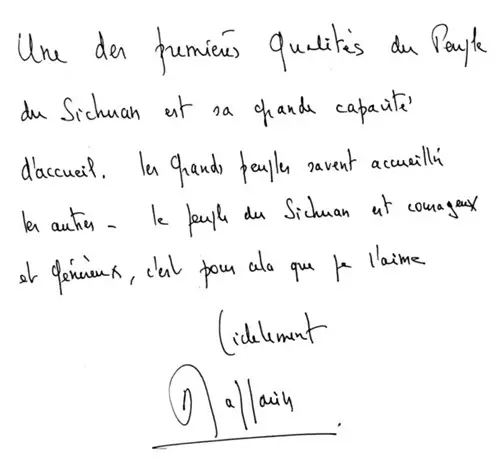 Une des premières qualités du Peuple
du Sichuan est sa grande capacité
d'accueil. Les grands peuples savent accueillir
les autres - le peuple du Sichuan est courageux
et généreux, c'est pour cela que je l'aime
fidèlement
Raffarin